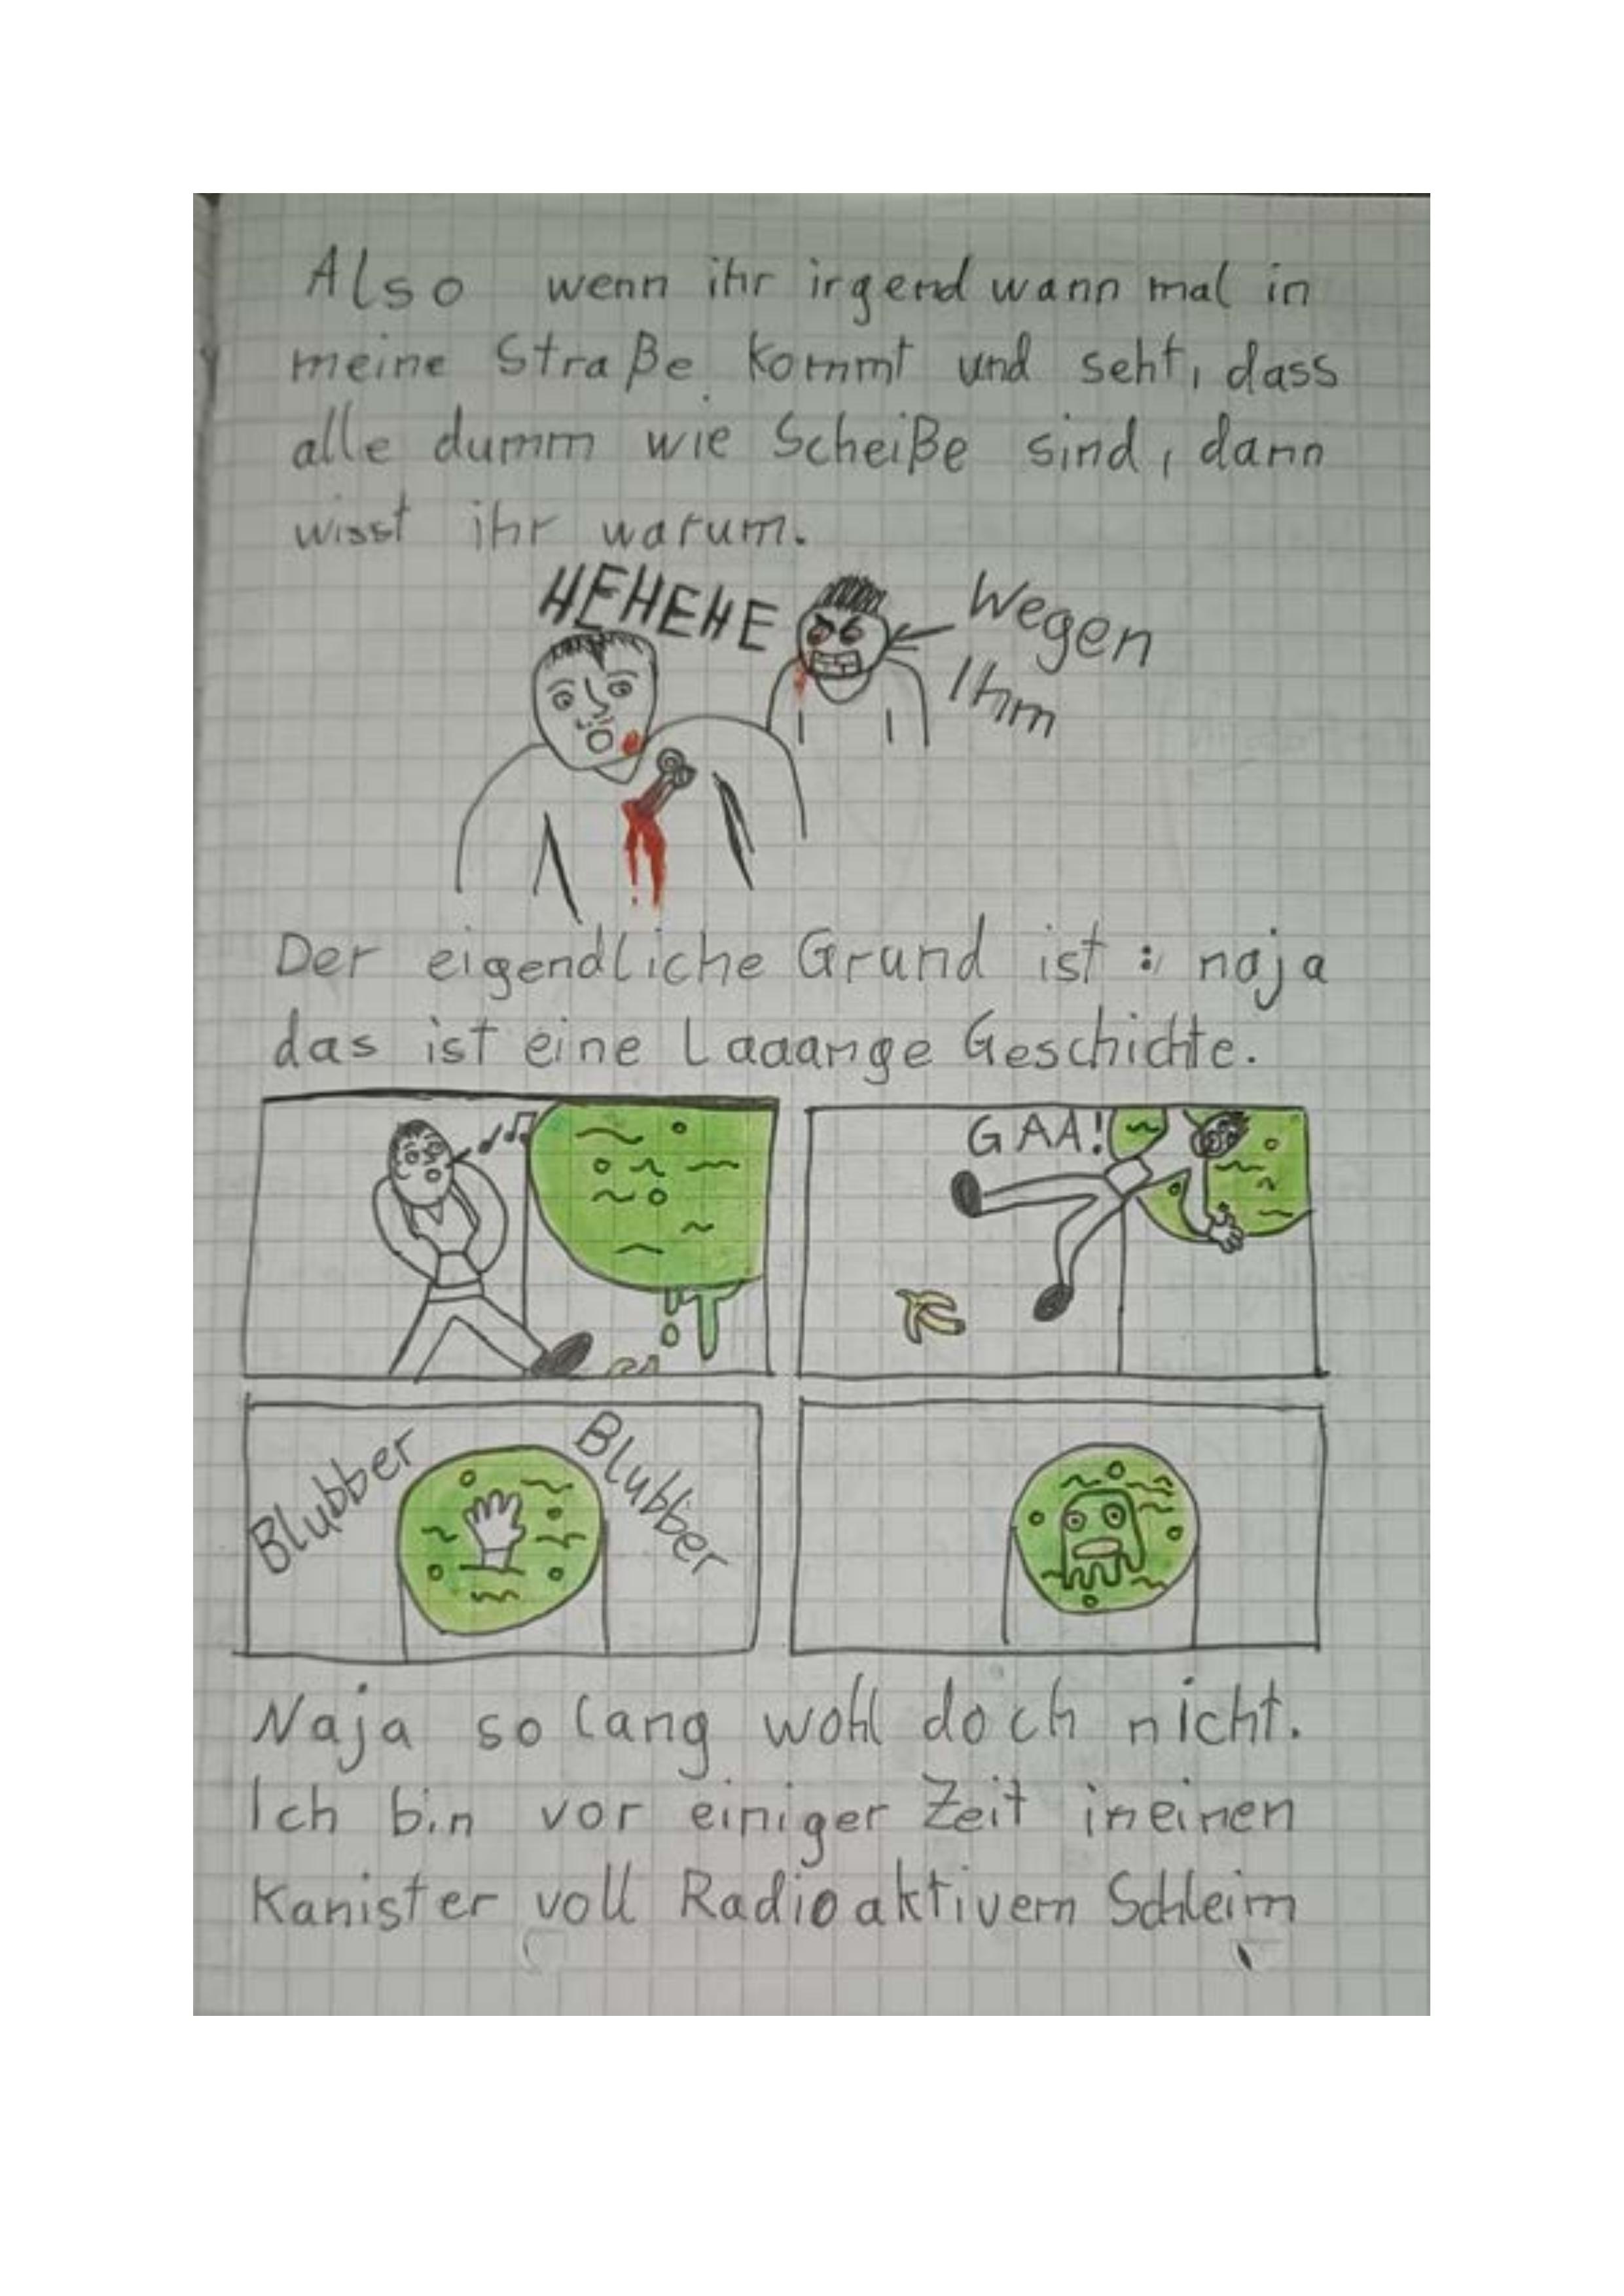 Also wenn ihr irgendwann mal in
meine Straße kommt und seht, dass
alle dumm wie Scheiße sind, dann
wisst ihr warum.
HEHEHE
Wegen
Ihm
Der eigendliche Grund ist: naja
das ist eine Laaange Geschichte.
GAA!
Blubber
Blubber
Naja so lang wohl doch nicht.
Ich bin vor einiger Zeit ineinen
Kanister voll Radioaktivem Schleim